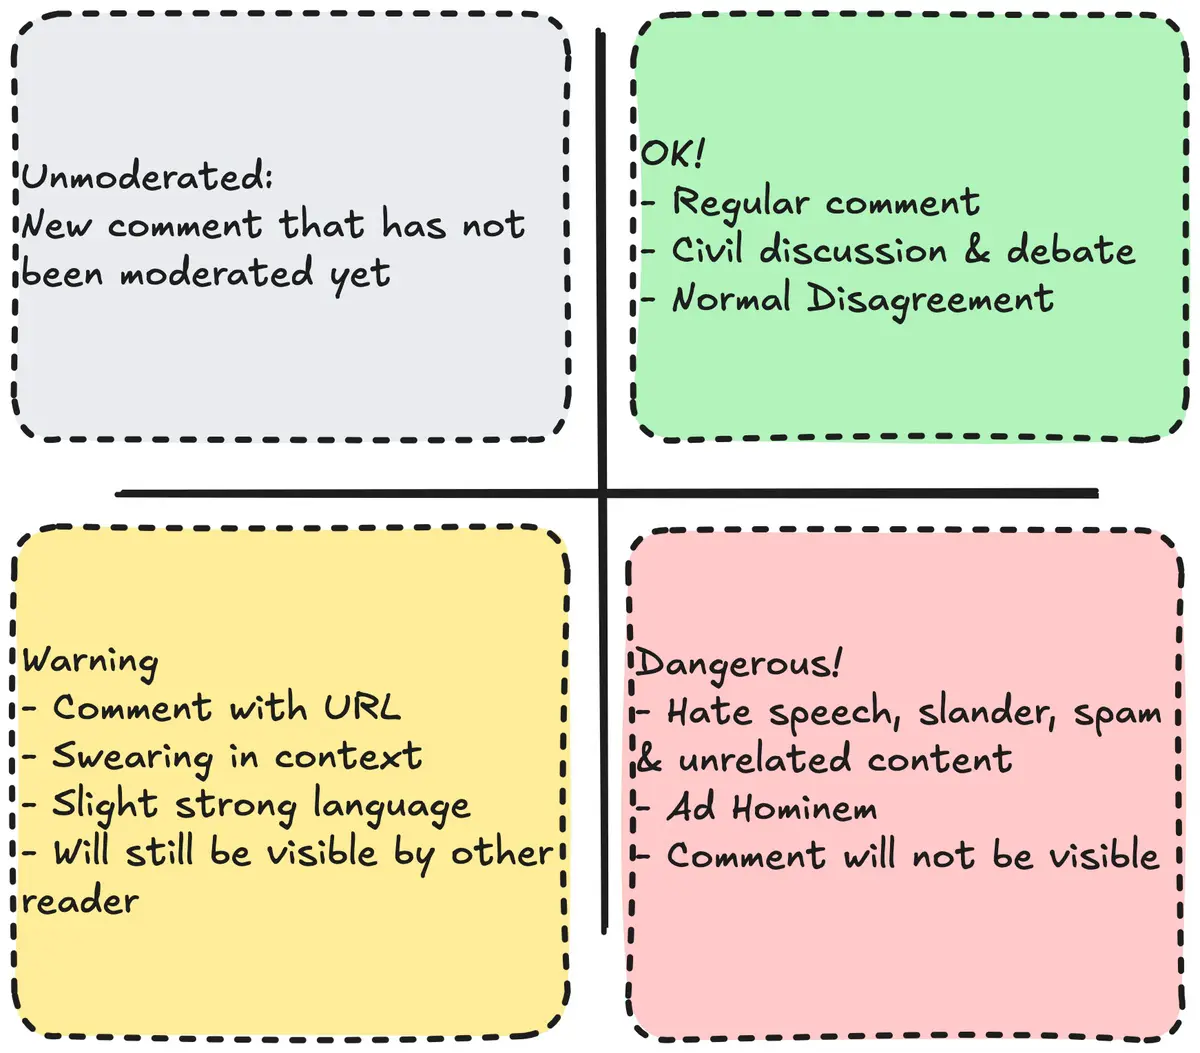 Unmoderated:
New comment that has not
been moderated yet
OK!
- Regular comment
- Civil discussion & debate
- Normal Disagreement
Warning
- Comment with URL
- Swearing in context
- Slight strong language
- Will still be visible by other
reader
Dangerous!
- Hate speech, slander, spam
& unrelated content
- Ad Hominem
- Comment will not be visible